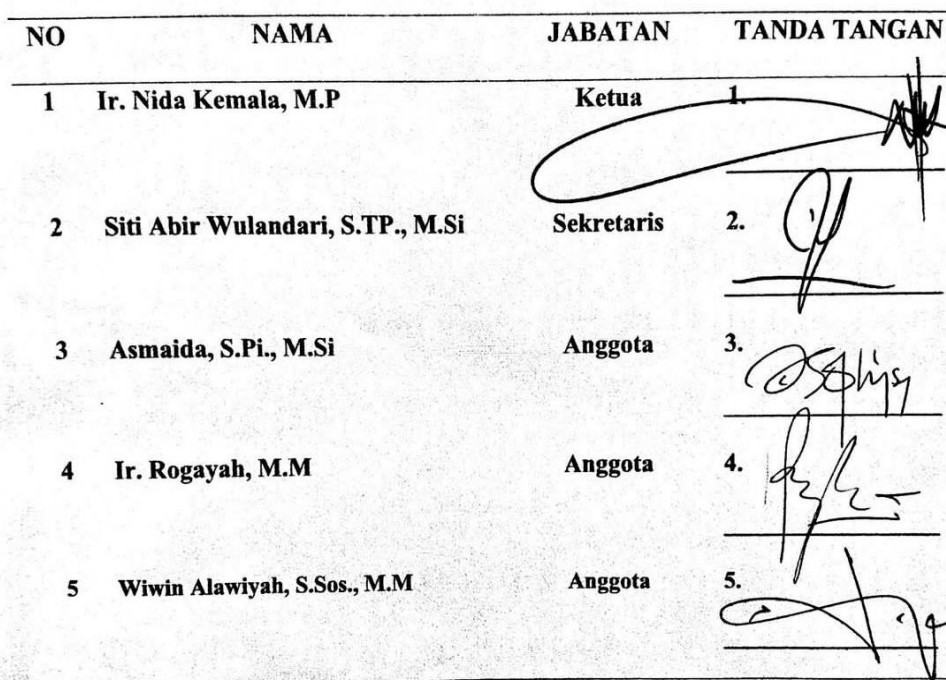 NO NAMA JABATAN TANDA TANGAN
1 Ir. Nida Kemala, M.P Ketua 1.
2 Siti Abir Wulandari, S.TP., M.Si Sekretaris 2.
3 Asmaida, S.Pi., M.Si Anggota 3.
4 Ir. Rogayah, M.M Anggota 4.
5 Wiwin Alawiyah, S.Sos., M.M Anggota 5.